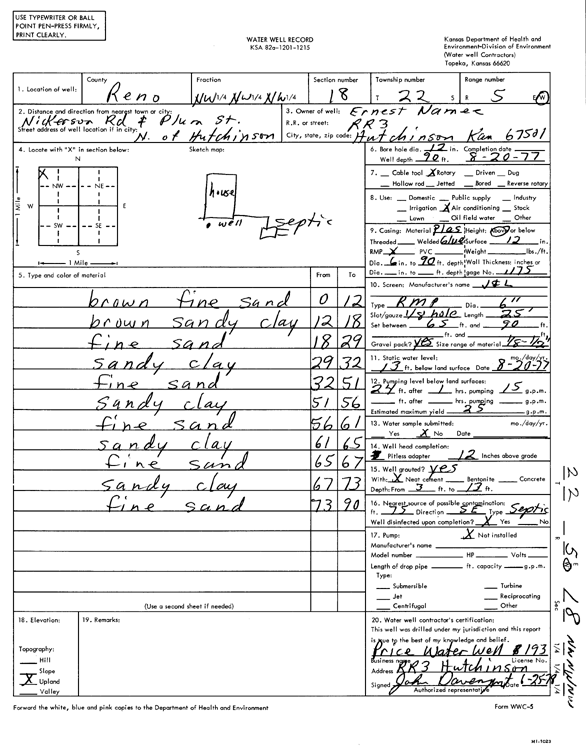 USE TYPEWRITER OR BALL
POINT PEN-PRESS FIRMLY,
PRINT CLEARLY.
WATER WELL RECORD
KSA 82a-1201-1215
Kansas Department of Health and
Environment-Division of Environment
(Water well Contractors)
Topeka, Kansas 66620
1. Location of well:
County Reno
Fraction NW 1/4 NW 1/4 NW 1/4
Section number 18
Township number T 22 S
Range number R 5 E/W
2. Distance and direction from nearest town or city:
Nickerson Rd & Plum St.
Street address of well location if in city:
N. of Hutchinson
3. Owner of well: Ernest Namee
R.R. or street: RR3
City, state, zip code: Hutchinson Kan 67501
4. Locate with "X" in section below:
N
X
NW NE
W E
SW SE
S
1 Mile
1 Mile
Sketch map:
house
well
septic
5. Type and color of material From To
brown fine sand 0 12
brown sandy clay 12 18
fine sand 18 29
sandy clay 29 32
fine sand 32 51
sandy clay 51 56
fine sand 56 61
sandy clay 61 65
fine sand 65 67
sandy clay 67 73
fine sand 73 90
(Use a second sheet if needed)
6. Bore hole dia. 12 in. Completion date
Well depth 90 ft. 8-20-77
7. Cable tool X Rotary Driven Dug
Hollow rod Jetted Bored Reverse rotary
8. Use: Domestic Public supply Industry
Irrigation X Air conditioning Stock
Lawn Oil field water Other
9. Casing: Material Plas Height: Above or below
Threaded Welded Glue Surface 12 in.
RMP X PVC Weight lbs./ft.
Dia. 6 in. to 90 ft. depth Wall Thickness: inches or
Dia. in. to ft. depth gage No. .175
10. Screen: Manufacturer's name J & L
Type RMP Dia. 6"
Slot/gauze 1/8 hole Length 25'
Set between 65 ft. and 90 ft.
ft. and ft.
Gravel pack? yes Size range of material 1/8-1/2"
11. Static water level: mo./day/yr.
13 ft. below land surface Date 8-20-77
12. Pumping level below land surfaces:
24 ft. after 1 hrs. pumping 15 g.p.m.
ft. after hrs. pumping g.p.m.
Estimated maximum yield 25 g.p.m.
13. Water sample submitted: mo./day/yr.
Yes X No Date
14. Well head completion:
Pitless adapter 12 Inches above grade
15. Well grouted? yes
With: X Neat cement Bentonite Concrete
Depth: From 3 ft. to 13 ft.
16. Nearest source of possible contamination:
ft. 75 Direction SE Type Septic
Well disinfected upon completion? X Yes No
17. Pump: X Not installed
Manufacturer's name
Model number HP Volts
Length of drop pipe ft. capacity g.p.m.
Type:
Submersible Turbine
Jet Reciprocating
Centrifugal Other
18. Elevation:
Topography:
Hill
Slope
X Upland
Valley
19. Remarks:
20. Water well contractor's certification:
This well was drilled under my jurisdiction and this report
is true to the best of my knowledge and belief.
Price Water Well 193
Business name License No.
Address RR3 Hutchinson
Signed John Davenport Date 6-25-78
Authorized representative
Forward the white, blue and pink copies to the Department of Health and Environment
Form WWC-5
T 22 R 5 E W Sec 18 NW NW NW
1/4 1/4 1/4